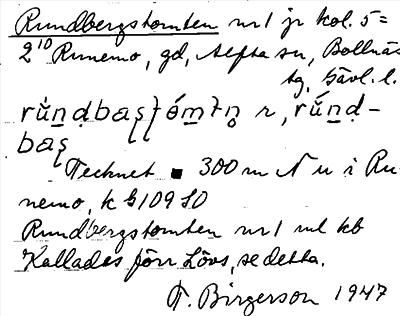 Rundbergstomten nr 1 jr kol. 5 =
2¹⁰ Runemo, gd, Alfta sn, Bollnäs
tg, Gävl. l.
rŭ́n̠ḍbaʂʈǿm̠tn̥ r, rŭ́n̠ḍ-
baʂ
Tecknet ■ 300 m N u i Ru-
nemo, k b 109 SO
Rundbergstomten nr 1 ml kb
Kallades förr Lövs, se detta.
F. Birgerson 1947